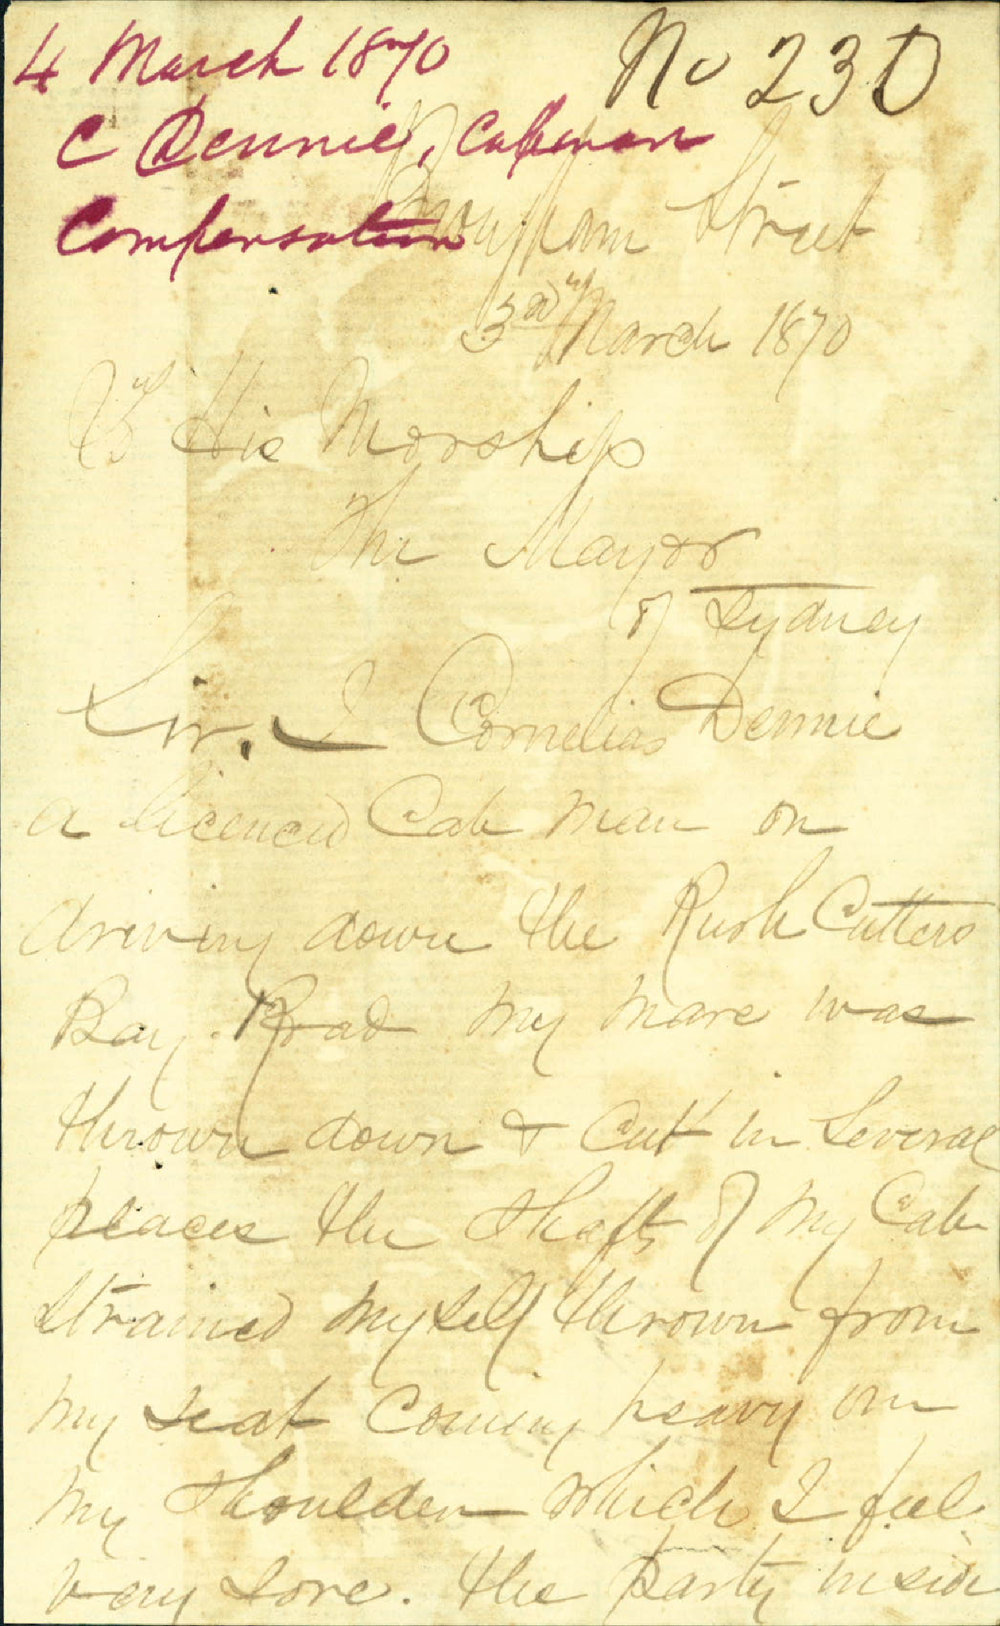 4 March 1870
No 230
C Dennie, Cabman
Compensation
Brougham Street
3rd March 1870
To His Worship
The Mayor
of Sydney
Sir. I Cornelias Dennie
a licenced Cab man on
driving down the Rush Cutters
Bay Road my mare was
thrown down & cut in several
places the Shafts of my Cab
strained myself thrown from
my seat coming heavy on
my shoulder which I feel
very sore. the party inside